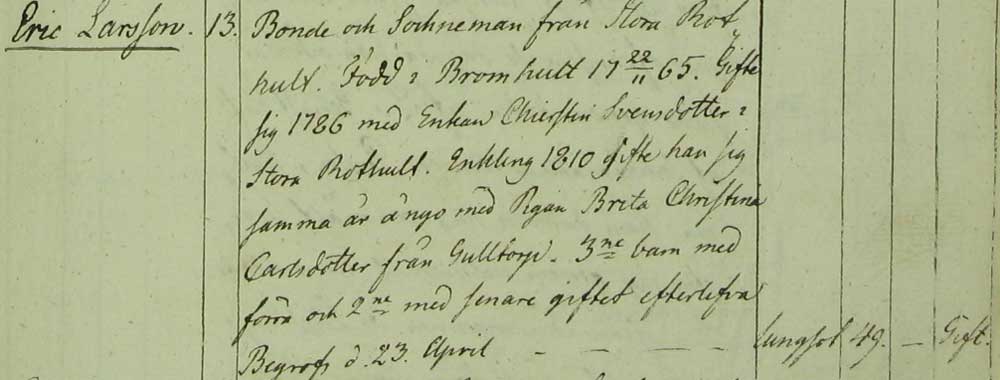 Eric Larsson. 13. Bonde och Sochneman från Stora Rot
hult. Född i Bromhult 17 22/11 65. Gifte
sig 1786 med Enkan Chierstin Svensdotter i
Stora Rothult. Enkling 1810 gifte han sig
samma år å nyo med Pigan Brita Christina
Carlsdotter från Gulltorp. 3ne barn med
förra och 2ne med senare giftet efterlefva
Begrofs d. 23. April — — — Lungsot 49. — Gift.